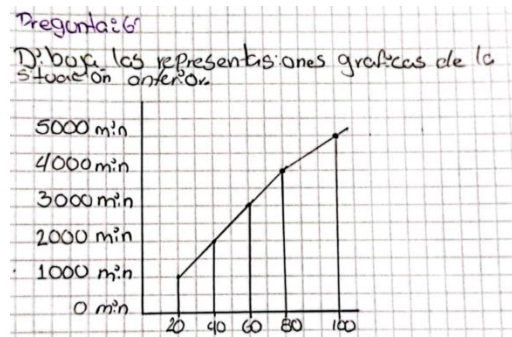 Pregunta:6
Dibuja las representasiones graficas de la
situación anterior.
5000 min
4000 min
3000 min
2000 min
1000 min
0 min
20 40 60 80 100